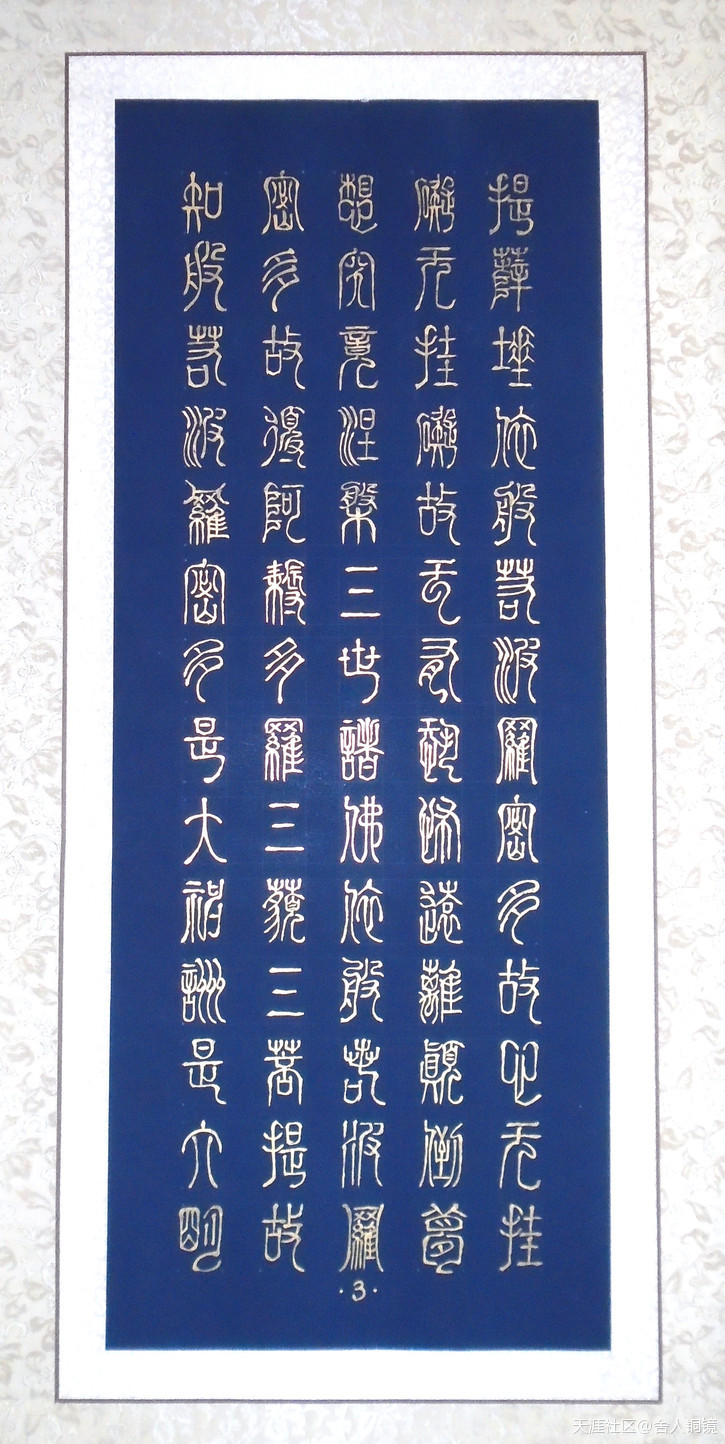 提薩埵依般若波羅密多故心无挂
礙无挂礙故无有恐怖遠離顛倒夢
想究竟涅槃三世諸佛依般若波羅
密多故復阿耨多羅三藐三菩提故
知般若波羅密多是大神詶是大明
·3·
天涯社区@舍人铜镜